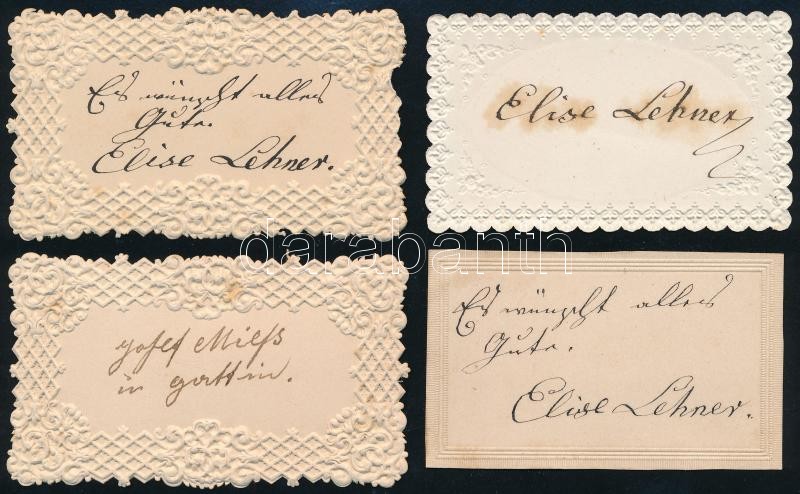 Es wünscht alles
Gute.
Elise Lehner.
Elise Lehner
Josef
in
Es wünscht alles
Gute.
Elise Lehner.
darabanth